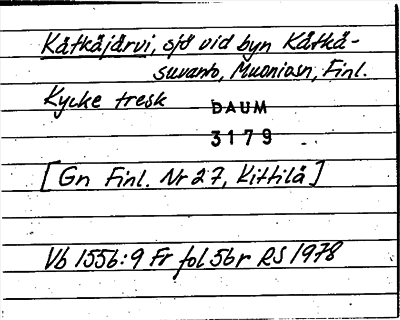 Kåtkåjärvi, sjö vid byn Kåtkå-
suvanto, Muoniosn, Finl.
Kycke tresk DAUM
3179
[Gn Finl. Nr 27, Kittilä]
Vb 1556:9 Fr fol 56r RS 1978